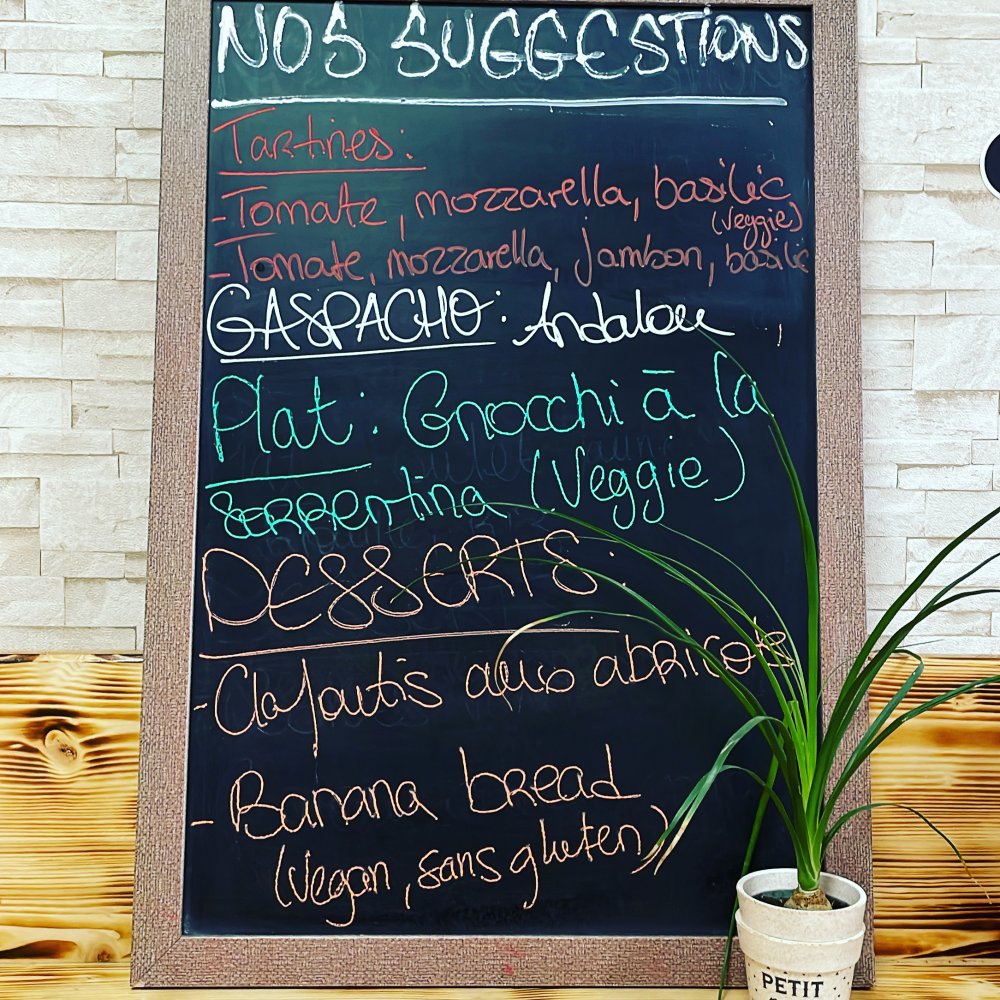 NOS SUGGESTIONS
Tartines :
- Tomate, mozzarella, basilic
(veggie)
- Tomate, mozzarella, jambon, basilic
GASPACHO : Andalou
Plat : Gnocchi à la
SERRentina (Veggie)
DESSERTS :
- Clafoutis aux abricots
- Banana bread
(Vegan, sans gluten)
PETIT